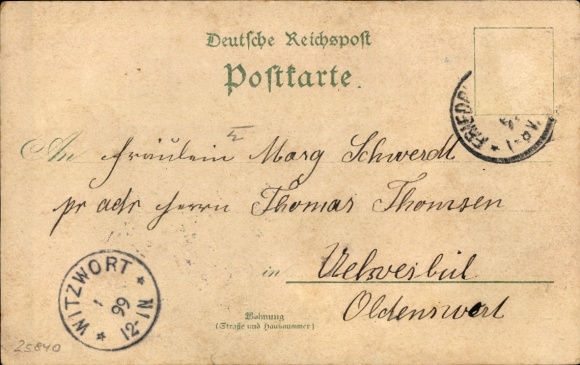 Deutsche Reichspost
Postkarte
FRIEDR
V.
An Fräulein Marg Schwerdt
pr adr Herrn Thomas Thomsen
in Uelvesbül
Oldenswort
WITZWORT
1
99
12-1N
Wohnung
(Straße und Hausnummer)
25840